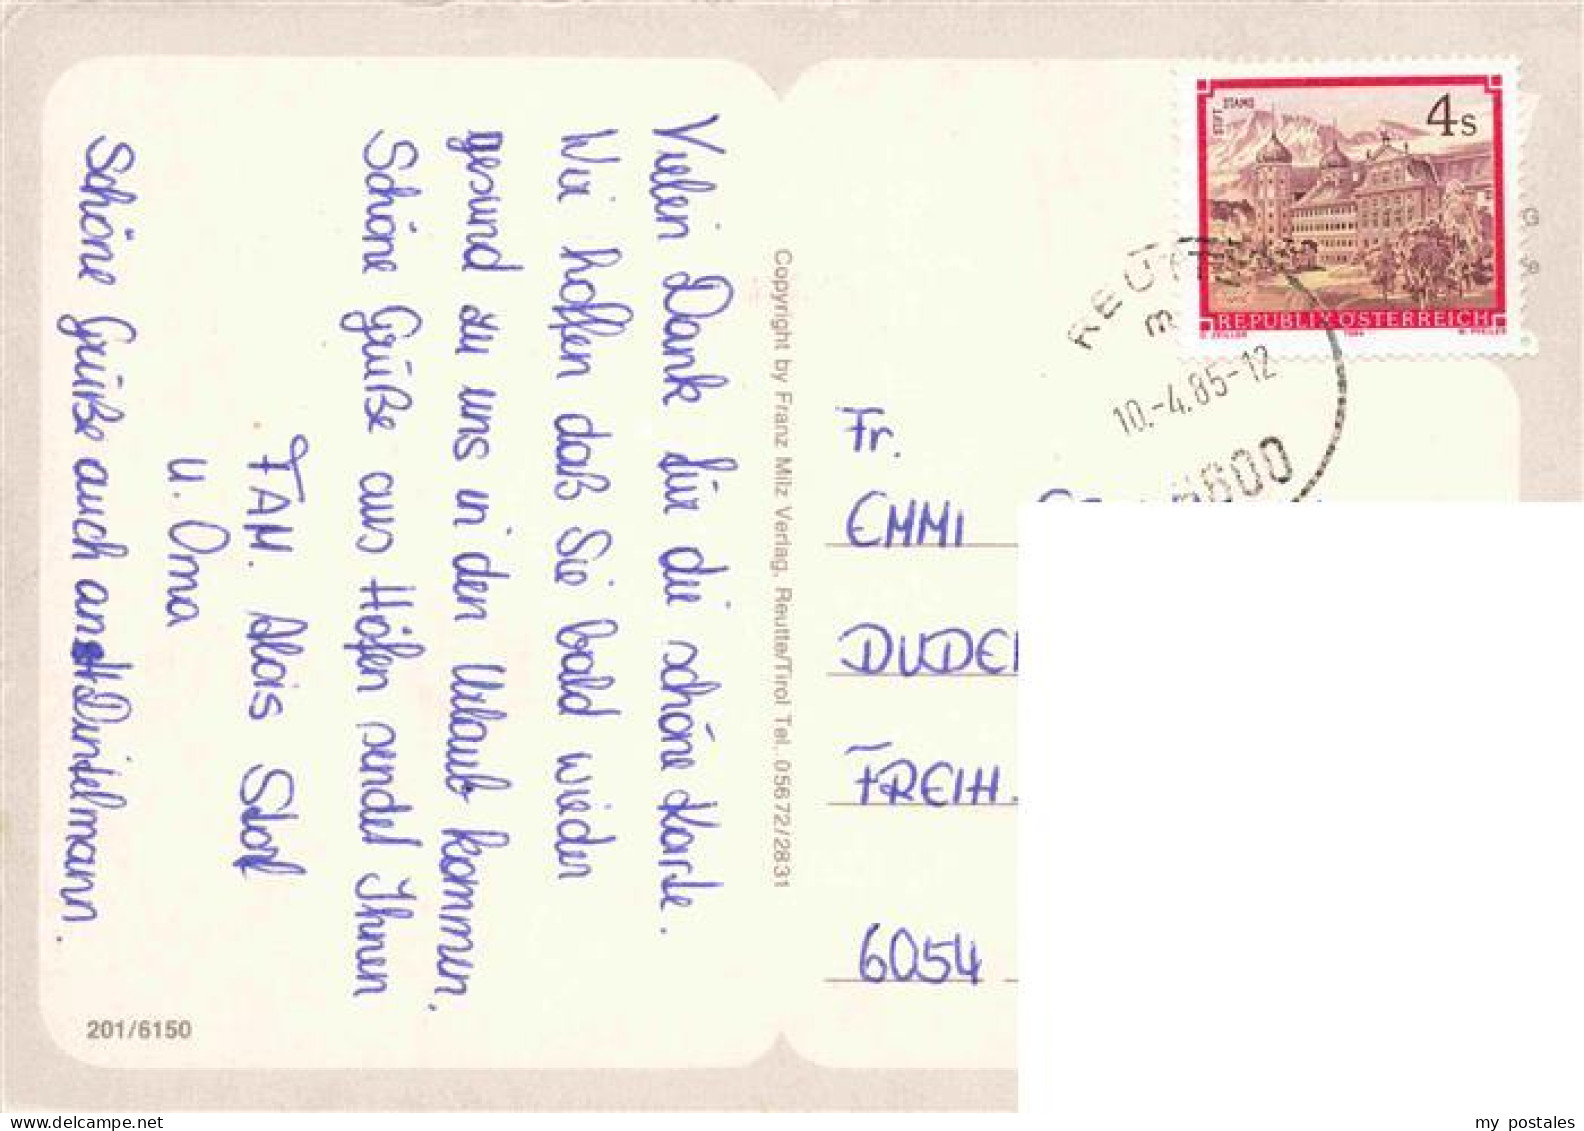 Vielen Dank für die schöne Karte.
Wir hoffen daß Sie bald wieder
gesund zu uns in den Urlaub kommen.
Schöne Grüße aus Höfen sendet Ihnen
FAM. Alois Storf
u. Oma
Schöne Grüße auch an H. Dintelmann.
201/6150
Copyright by Franz Milz Verlag, Reutte/Tirol Tel. 05672/2831
STIFT STAMS
4 S
REPUBLIK ÖSTERREICH
10.-4.85-12
6600
Fr.
EMMI
FREIH.
6054
delcampe.net
my postales